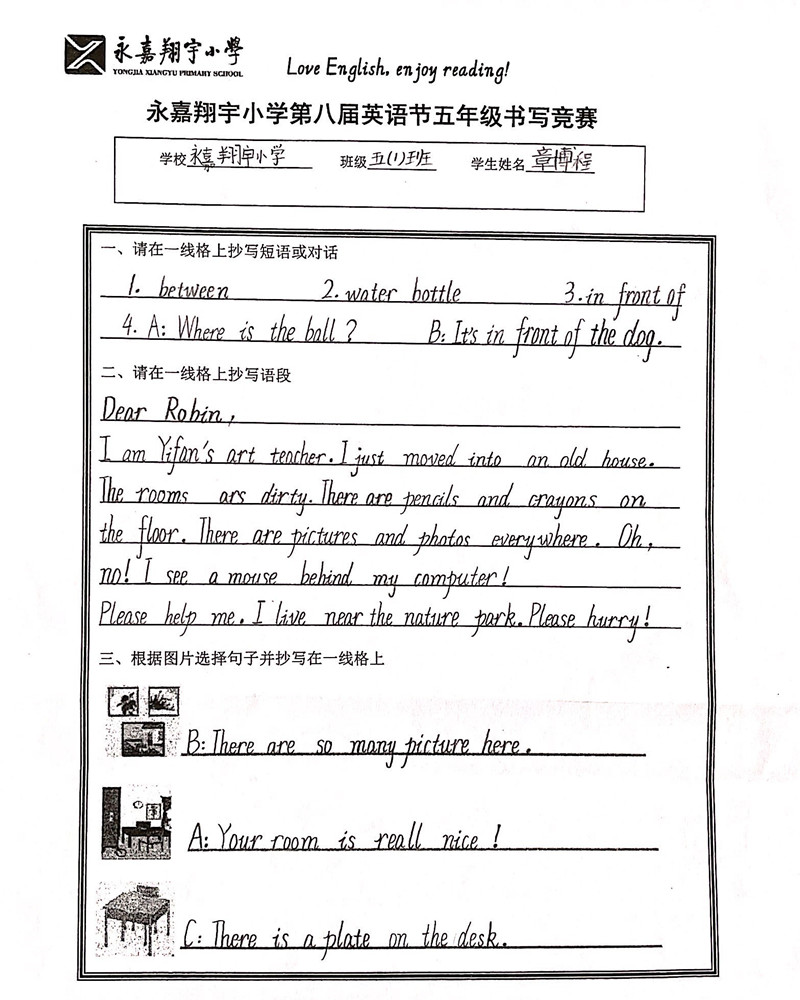 永嘉翔宇小學
YONGJIA XIANGYU PRIMARY SCHOOL
Love English, enjoy reading!
永嘉翔宇小学第八届英语节五年级书写竞赛
学校 永嘉翔宇小学 班级 五(1)班 学生姓名 章博程
一、请在一线格上抄写短语或对话
1. between 2. water bottle 3. in front of
4. A: Where is the ball? B: It's in front of the dog.
二、请在一线格上抄写语段
Dear Robin,
I am Yifan's art teacher. I just moved into an old house.
The rooms ars dirty. There are pencils and crayons on
the floor. There are pictures and photos everywhere. Oh,
no! I see a mouse behind my computer!
Please help me. I live near the nature park. Please hurry!
三、根据图片选择句子并抄写在一线格上
B: There are so many picture here.
A: Your room is reall nice!
C: There is a plate on the desk.